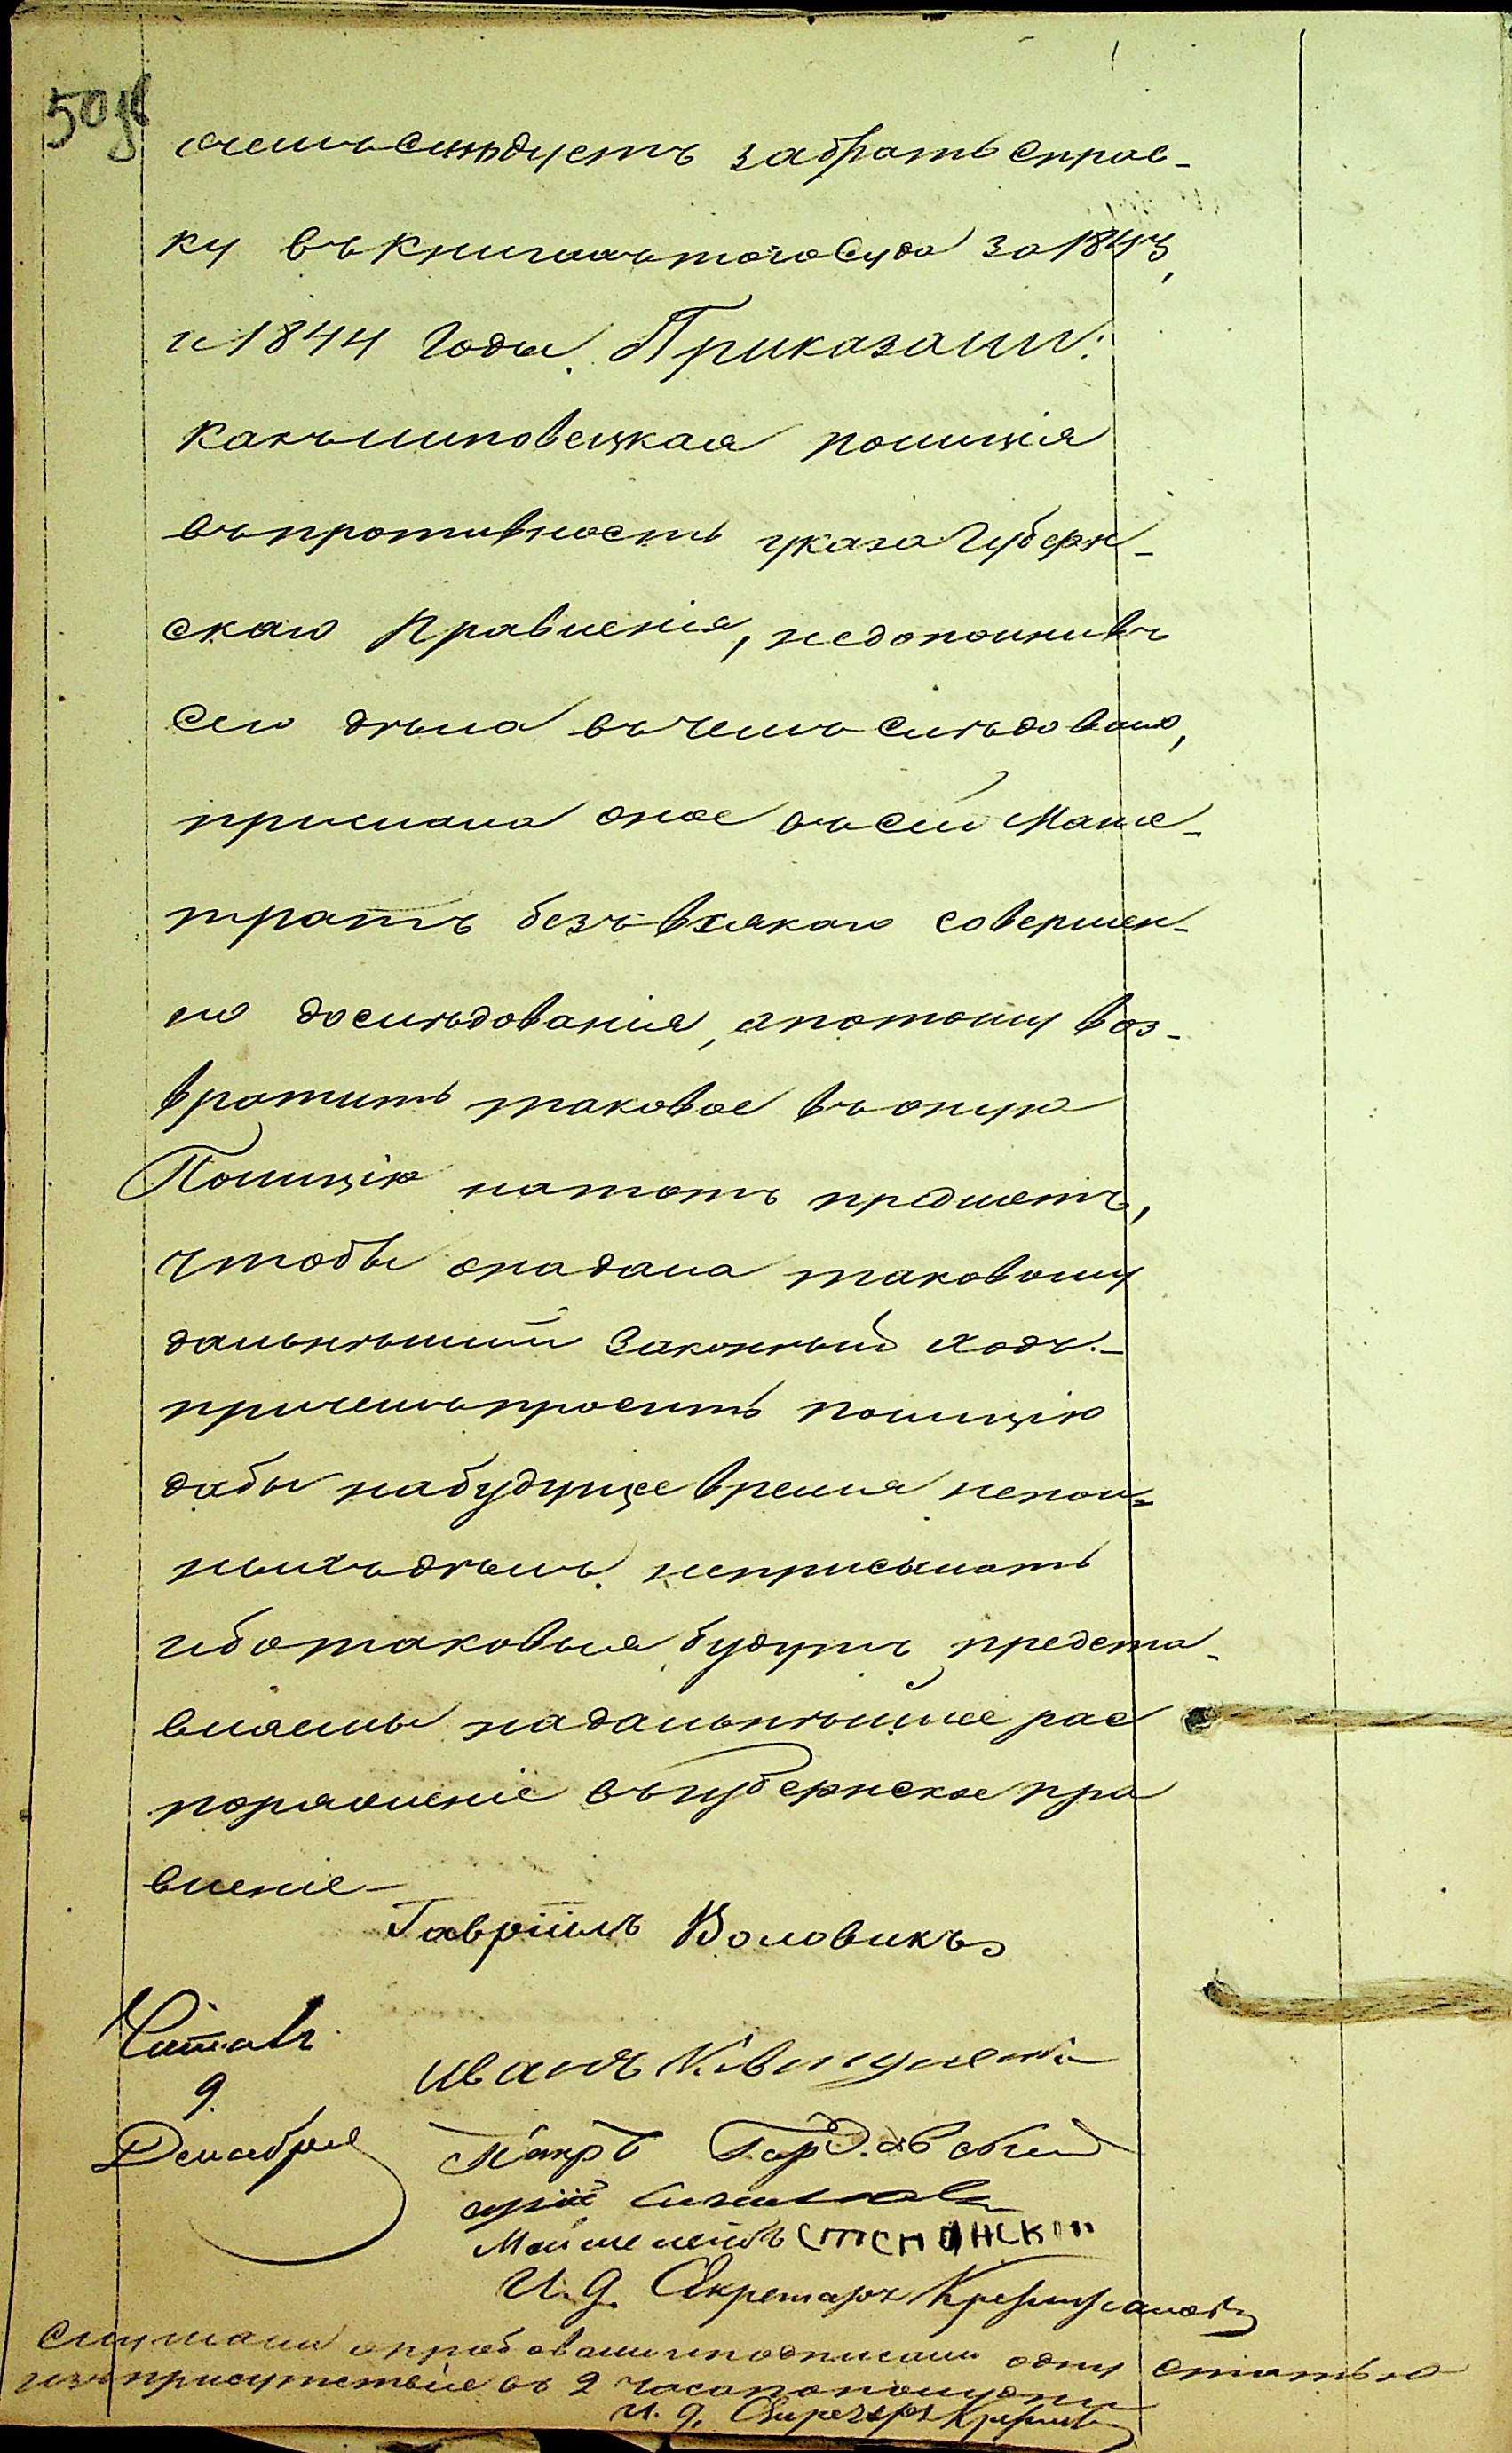 50об
о чемъ слѣдуетъ забрать справ-
ку въ книгахъ того Суда за 1843,
и 1844 годы. Приказали:
Какъ Липовецкая полиція
въ противность указа Губерн-
скаго Правленія, недополнивъ
сего дѣла въ чемъ слѣдовало,
прислала оное въ сей Маги-
тратъ безъ всякаго совершен-
го дослѣдованія, а потому воз-
вратить таковое въ оную
Полицію на тотъ предметъ,
чтобы она дала таковому
дальнѣйшій Законный ходъ.-
при чемъ просить полицію
дабы на будущее время непол-
ныхъ дѣлъ не присылать
ибо таковыя будутъ предста-
вляемы на дальнѣйшее рас
поряженіе въ губернское пра
вленіе-
Гавріилъ Воловикъ
Читалъ
9.
Декабря
Иванъ
И. д. Секретаря
Слушали апробовали и подписали одну статью
изъ присутствіе въ 2 часа пополудни
И. д. Секретаря